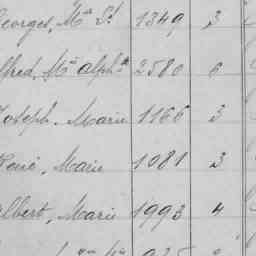 Georges, Mie St 1349 3
lfred, Mie Alphse 2580 6
Joseph, Marie 1166 3
René, Marie 1081 3
lbert, Marie 1993 4